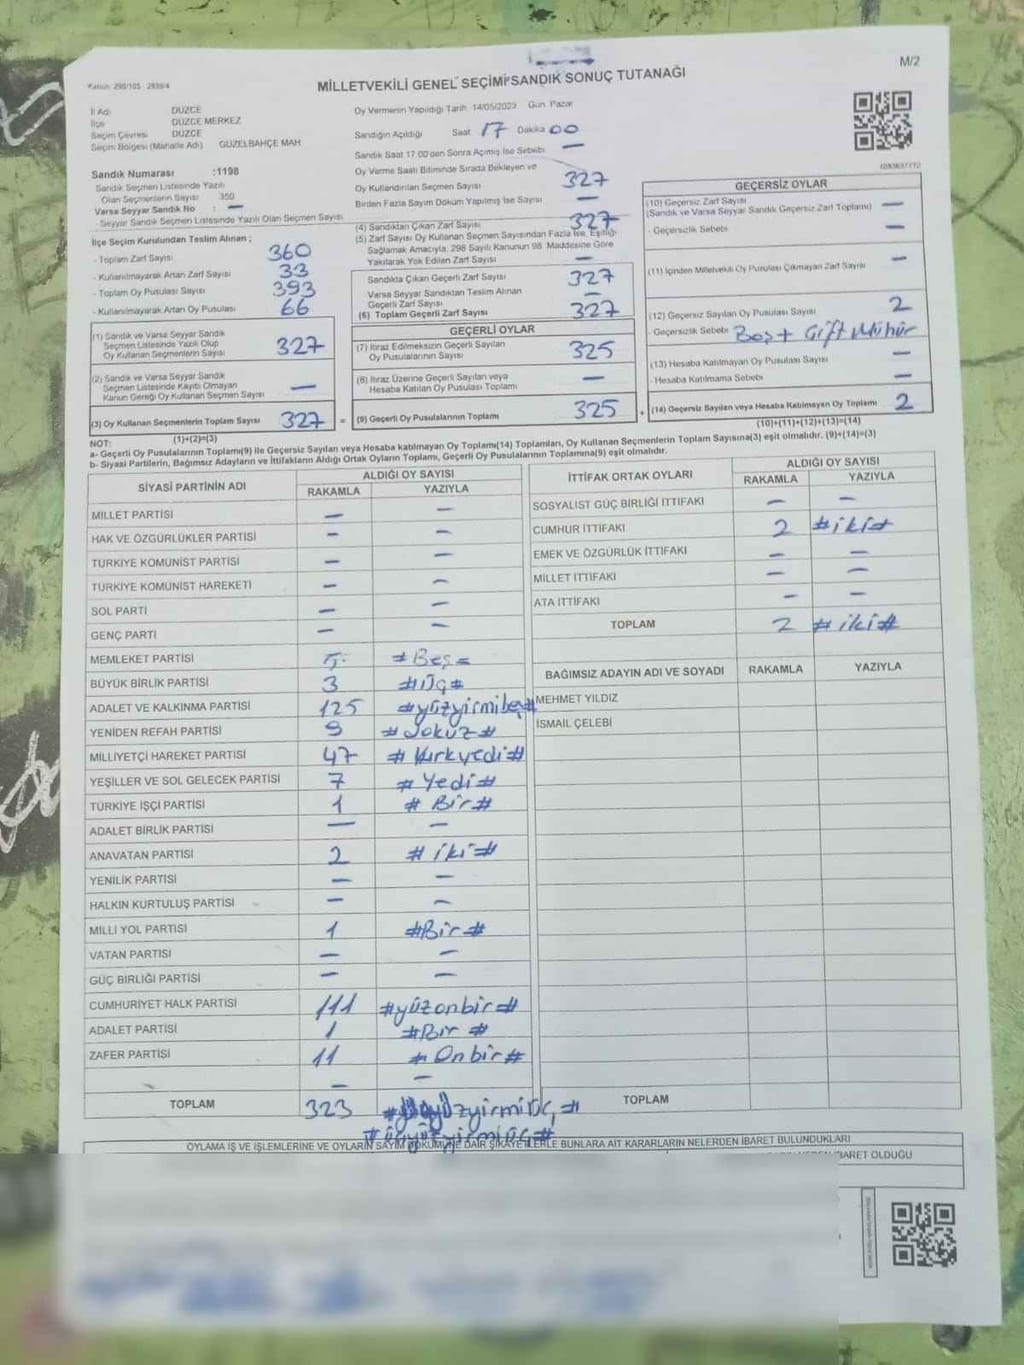 M/2
Kanun: 298/105 2839/4
MİLLETVEKİLİ GENEL SEÇİMİ SANDIK SONUÇ TUTANAĞI
İl Adı : DÜZCE
İlçe : DÜZCE MERKEZ
Seçim Çevresi : DÜZCE
Seçim Bölgesi (Mahalle Adı) GÜZELBAHÇE MAH
Sandık Numarası :1198
Sandık Seçmen Listesinde Yazılı
Olan Seçmenlerin Sayısı 350
Varsa Seyyar Sandık No : —
Seyyar Sandık Seçmen Listesinde Yazılı Olan Seçmen Sayısı
İlçe Seçim Kurulundan Teslim Alınan ;
- Toplam Zarf Sayısı 360
- Kullanılmayarak Artan Zarf Sayısı 33
- Toplam Oy Pusulası Sayısı 393
- Kullanılmayarak Artan Oy Pusulası 66
(1) Sandık ve Varsa Seyyar Sandık
Seçmen Listesinde Yazılı Olup
Oy Kullanan Seçmenlerin Sayısı 327
(2) Sandık ve Varsa Seyyar Sandık
Seçmen Listesinde Kayıtlı Olmayan
Kanun Gereği Oy Kullanan Seçmen Sayısı —
(3) Oy Kullanan Seçmenlerin Toplam Sayısı 327 =
(1)+(2)=(3)
Oy Vermenin Yapıldığı Tarih 14/05/2023 Gün: Pazar
Sandığın Açıldığı Saat 17 Dakika 00
Sandık Saat 17:00'den Sonra Açılmış İse Sebebi —
Oy Verme Saati Bitiminde Sırada Bekleyen ve
Oy Kullandırılan Seçmen Sayısı 327
Birden Fazla Sayım Döküm Yapılmış İse Sayısı —
(4) Sandıktan Çıkan Zarf Sayısı 327
(5) Zarf Sayısı Oy Kullanan Seçmen Sayısından Fazla İse, Eşitliği
Sağlamak Amacıyla; 298 Sayılı Kanunun 98. Maddesine Göre
Yakılarak Yok Edilen Zarf Sayısı —
Sandıkta Çıkan Geçerli Zarf Sayısı 327
Varsa Seyyar Sandıktan Teslim Alınan
Geçerli Zarf Sayısı —
(6) Toplam Geçerli Zarf Sayısı 327
GEÇERLİ OYLAR
(7) İtiraz Edilmeksizin Geçerli Sayılan
Oy Pusulalarının Sayısı 325
(8) İtiraz Üzerine Geçerli Sayılan veya
Hesaba Katılan Oy Pusulaları Toplamı —
(9) Geçerli Oy Pusulalarının Toplamı 325 +
GEÇERSİZ OYLAR
(10) Geçersiz Zarf Sayısı
(Sandık ve Varsa Seyyar Sandık Geçersiz Zarf Toplamı) —
- Geçersizlik Sebebi —
(11) İçinden Milletvekili Oy Pusulası Çıkmayan Zarf Sayısı —
(12) Geçersiz Sayılan Oy Pusulası Sayısı 2
- Geçersizlik Sebebi Boş + Çift Mühür
(13) Hesaba Katılmayan Oy Pusulası Sayısı —
- Hesaba Katılmama Sebebi —
(14) Geçersiz Sayılan veya Hesaba Katılmayan Oy Toplamı 2
(10)+(11)+(12)+(13)=(14)
NOT:
a- Geçerli Oy Pusulalarının Toplamı(9) ile Geçersiz Sayılan veya Hesaba katılmayan Oy Toplamı(14) Toplamları, Oy Kullanan Seçmenlerin Toplam Sayısına(3) eşit olmalıdır. (9)+(14)=(3)
b- Siyasi Partilerin, Bağımsız Adayların ve İttifakların Aldığı Ortak Oyların Toplamı, Geçerli Oy Pusulalarının Toplamına(9) eşit olmalıdır.
SİYASİ PARTİNİN ADI ALDIĞI OY SAYISI
RAKAMLA YAZIYLA
MİLLET PARTİSİ — —
HAK VE ÖZGÜRLÜKLER PARTİSİ — —
TÜRKİYE KOMÜNİST PARTİSİ — —
TÜRKİYE KOMÜNİST HAREKETİ — —
SOL PARTİ — —
GENÇ PARTİ — —
MEMLEKET PARTİSİ 5 #Beş=
BÜYÜK BİRLİK PARTİSİ 3 #Üç#
ADALET VE KALKINMA PARTİSİ 125 #yüzyirmibeş#
YENİDEN REFAH PARTİSİ 9 #Dokuz#
MİLLİYETÇİ HAREKET PARTİSİ 47 #Kırkyedi#
YEŞİLLER VE SOL GELECEK PARTİSİ 7 #Yedi#
TÜRKİYE İŞÇİ PARTİSİ 1 #Bir#
ADALET BİRLİK PARTİSİ — —
ANAVATAN PARTİSİ 2 #iki#
YENİLİK PARTİSİ — —
HALKIN KURTULUŞ PARTİSİ — —
MİLLİ YOL PARTİSİ 1 #Bir#
VATAN PARTİSİ — —
GÜÇ BİRLİĞİ PARTİSİ — —
CUMHURİYET HALK PARTİSİ 111 #yüzonbir#
ADALET PARTİSİ 1 #Bir#
ZAFER PARTİSİ 11 #Onbir#
— —
TOPLAM 323
#üçyüzyirmiüç#
İTTİFAK ORTAK OYLARI ALDIĞI OY SAYISI
RAKAMLA YAZIYLA
SOSYALİST GÜÇ BİRLİĞİ İTTİFAKI — —
CUMHUR İTTİFAKI 2 #iki#
EMEK VE ÖZGÜRLÜK İTTİFAKI — —
MİLLET İTTİFAKI — —
ATA İTTİFAKI — —
TOPLAM 2 #iki#
BAĞIMSIZ ADAYIN ADI VE SOYADI RAKAMLA YAZIYLA
MEHMET YILDIZ
İSMAİL ÇELEBİ
TOPLAM
OYLAMA İŞ VE İŞLEMLERİNE VE OYLARIN SAYIM DÖKÜMÜNE DAİR ŞİKAYETLERLE BUNLARA AİT KARARLARIN NELERDEN İBARET BULUNDUKLARI
İBARET OLDUĞU